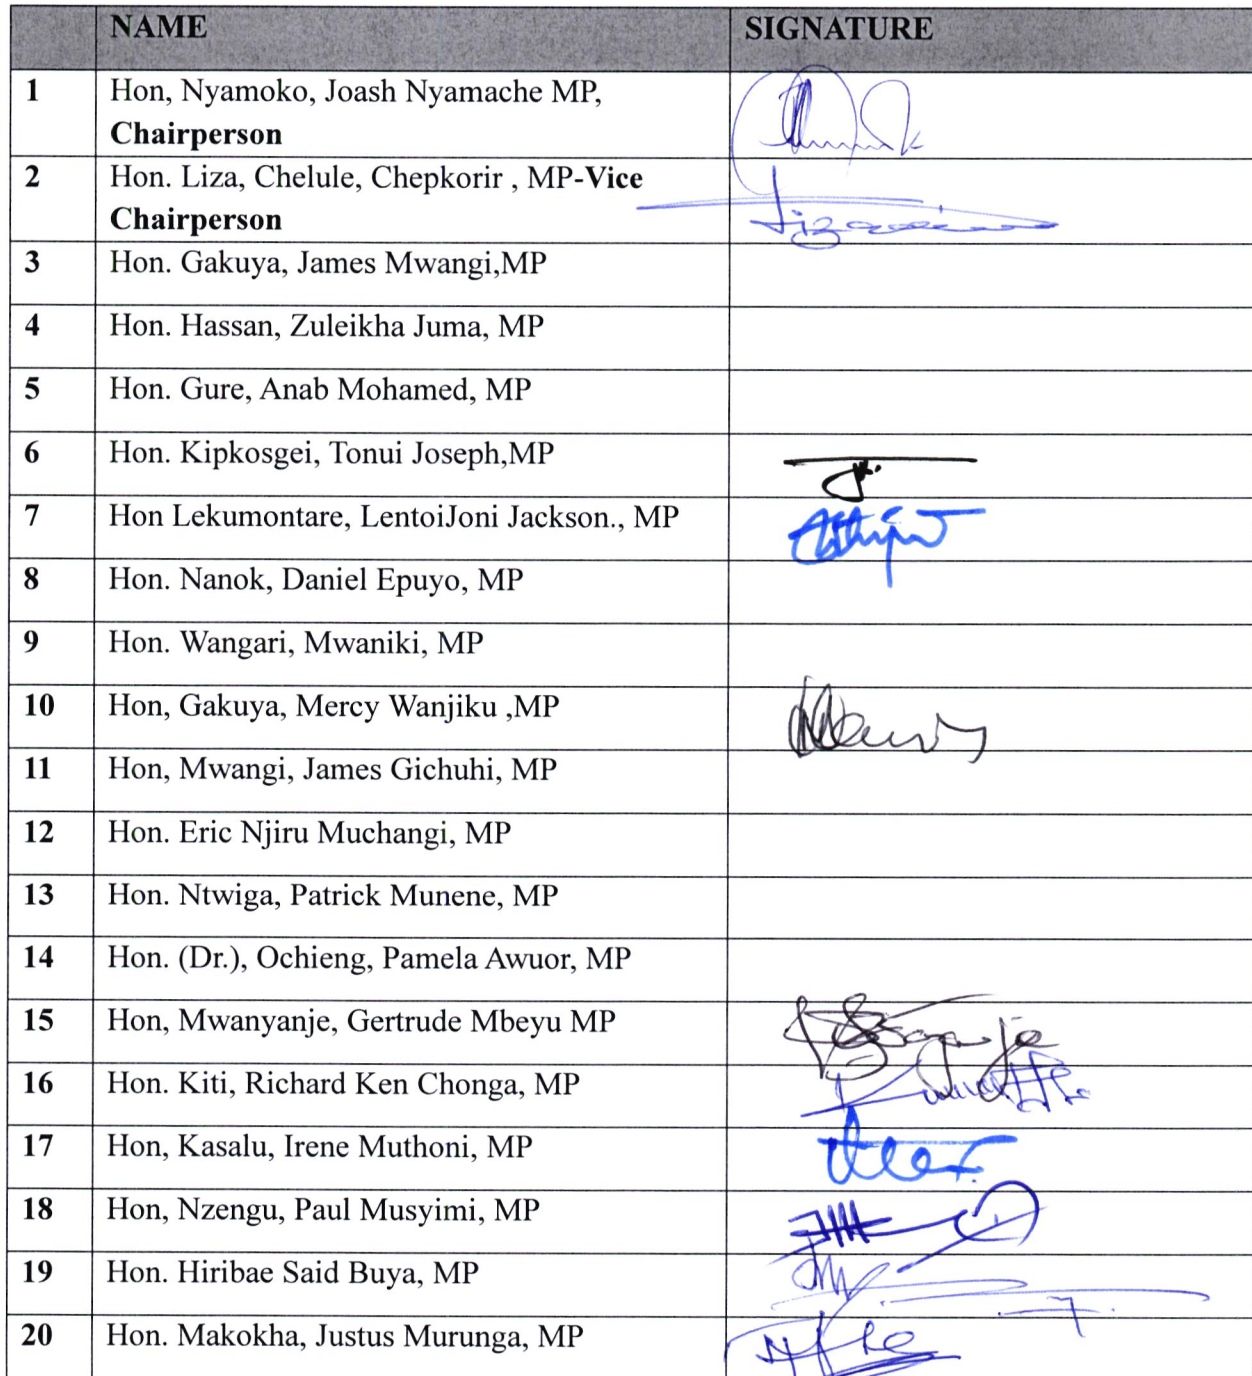 NAME SIGNATURE
1 Hon, Nyamoko, Joash Nyamache MP,
Chairperson
2 Hon. Liza, Chelule, Chepkorir , MP-Vice
Chairperson
3 Hon. Gakuya, James Mwangi,MP
4 Hon. Hassan, Zuleikha Juma, MP
5 Hon. Gure, Anab Mohamed, MP
6 Hon. Kipkosgei, Tonui Joseph,MP
7 Hon Lekumontare, LentoiJoni Jackson., MP
8 Hon. Nanok, Daniel Epuyo, MP
9 Hon. Wangari, Mwaniki, MP
10 Hon, Gakuya, Mercy Wanjiku ,MP
11 Hon, Mwangi, James Gichuhi, MP
12 Hon. Eric Njiru Muchangi, MP
13 Hon. Ntwiga, Patrick Munene, MP
14 Hon. (Dr.), Ochieng, Pamela Awuor, MP
15 Hon, Mwanyanje, Gertrude Mbeyu MP
16 Hon. Kiti, Richard Ken Chonga, MP
17 Hon, Kasalu, Irene Muthoni, MP
18 Hon, Nzengu, Paul Musyimi, MP
19 Hon. Hiribae Said Buya, MP
20 Hon. Makokha, Justus Murunga, MP